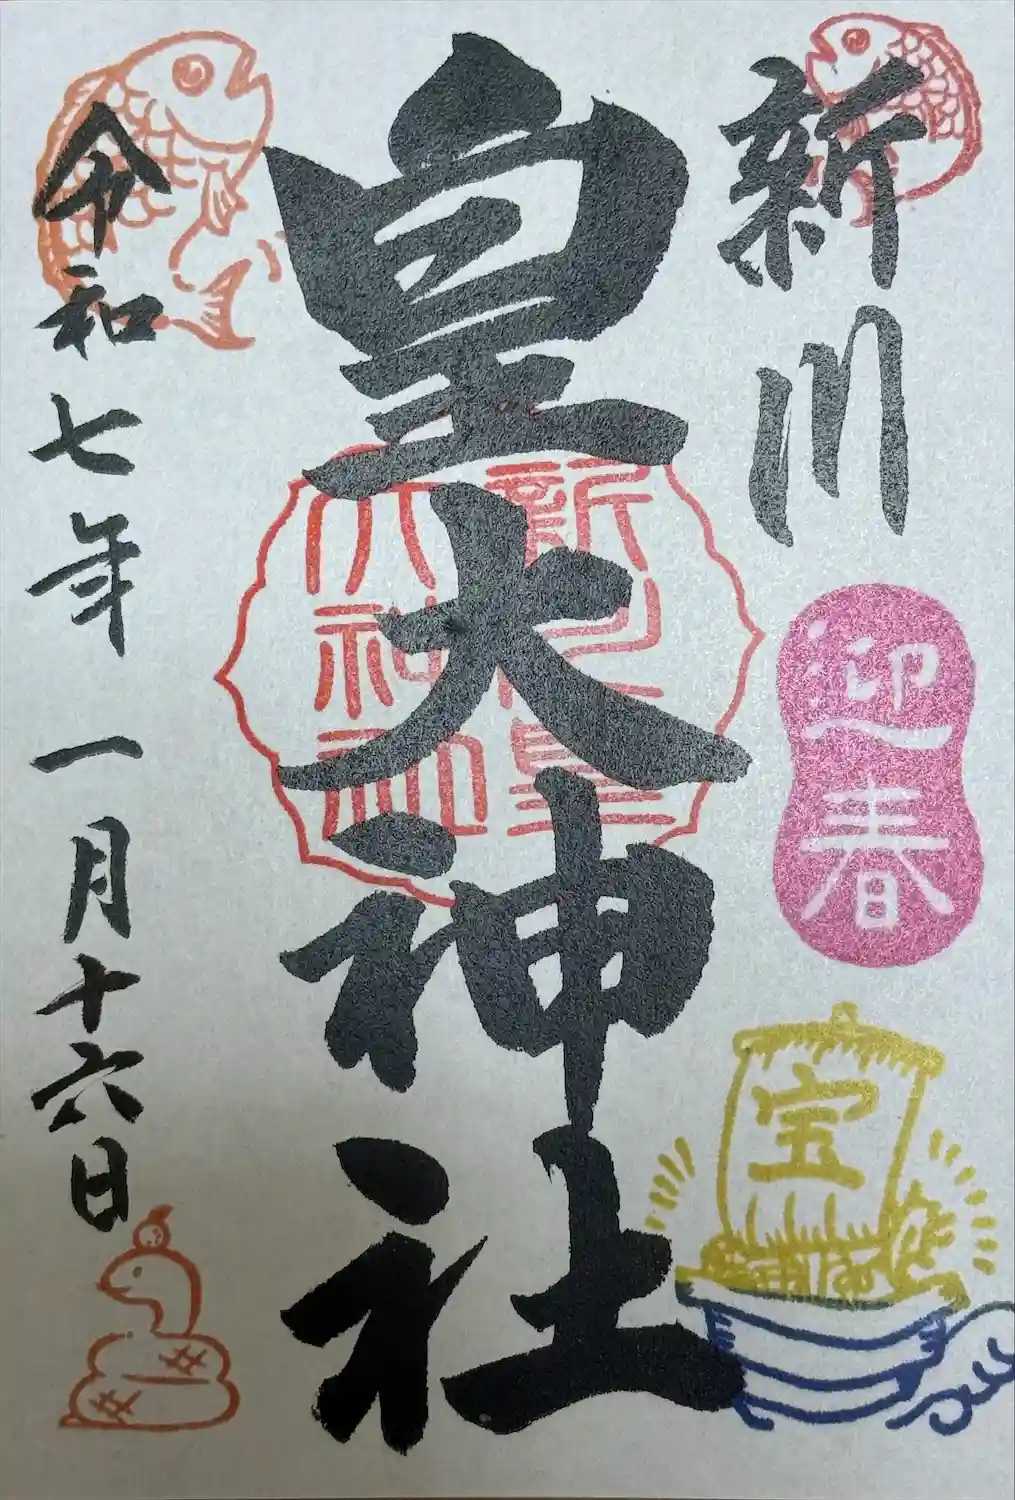 新川
迎春
宝
皇大神社
新川皇
大神社
令和七年一月十六日